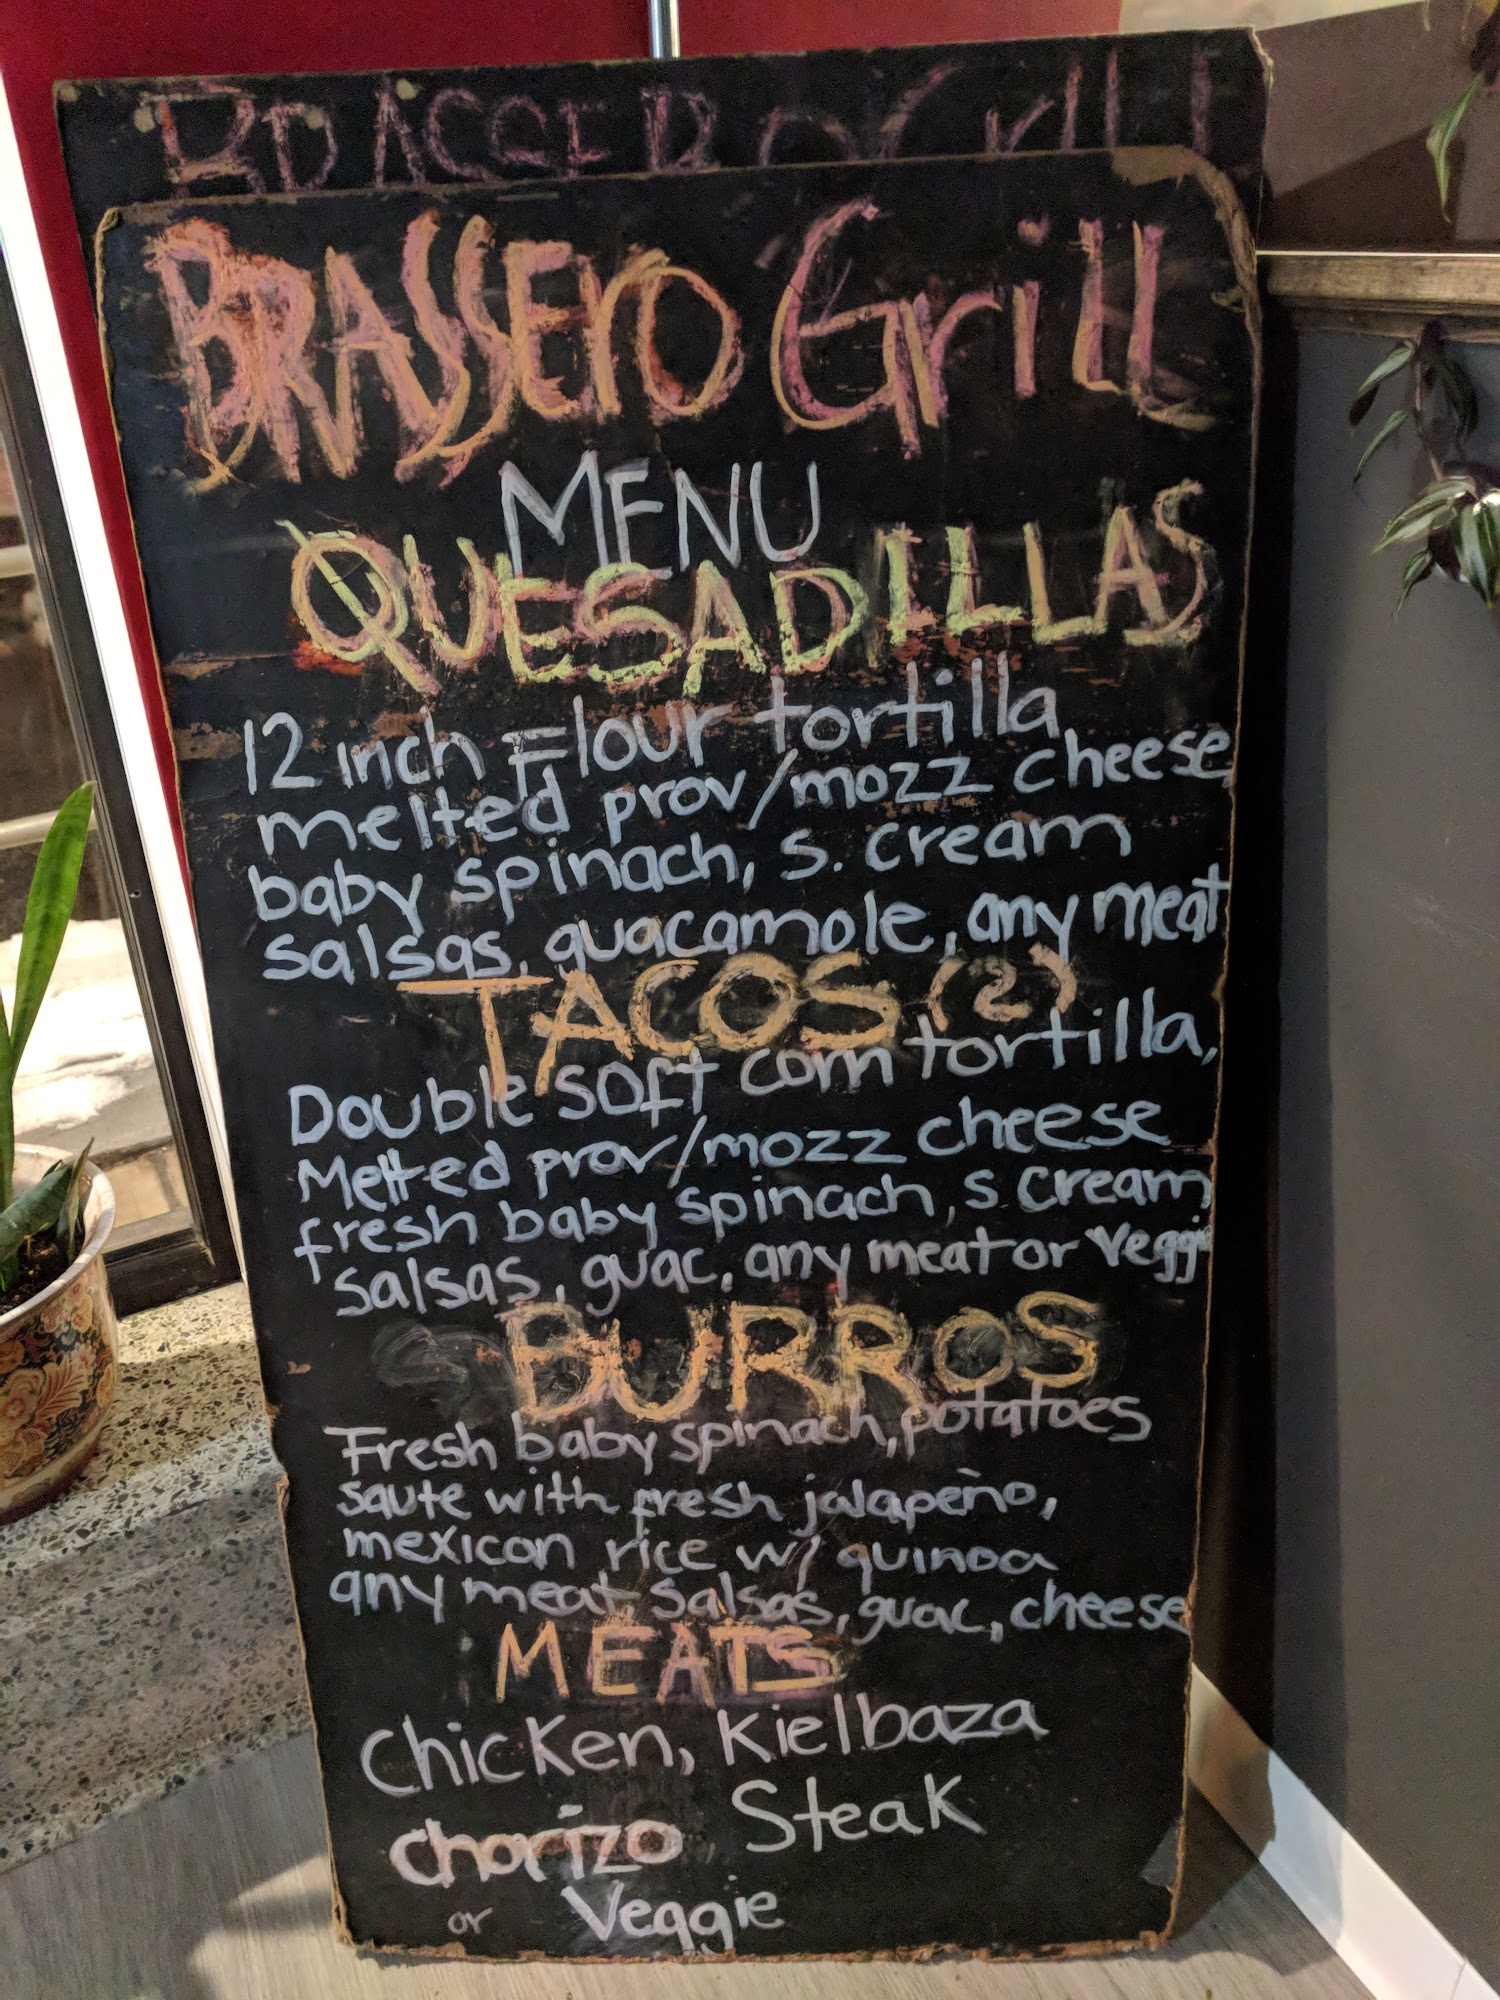 BRASSERO Grill
BRASSERO Grill
MENU
QUESADILLAS
12 inch Flour tortilla
melted prov/mozz cheese,
baby spinach, s. cream
salsas, guacamole, any meat
TACOS (2)
Double soft corn tortilla,
Melted prov/mozz cheese
fresh baby spinach, s cream
salsas, guac, any meat or veggie
BURROS
Fresh baby spinach, potatoes
saute with fresh jalapeño,
mexican rice w/ quinoa
any meat salsas, guac, cheese
MEATS
Chicken, Kielbaza
chorizo, Steak
or Veggie